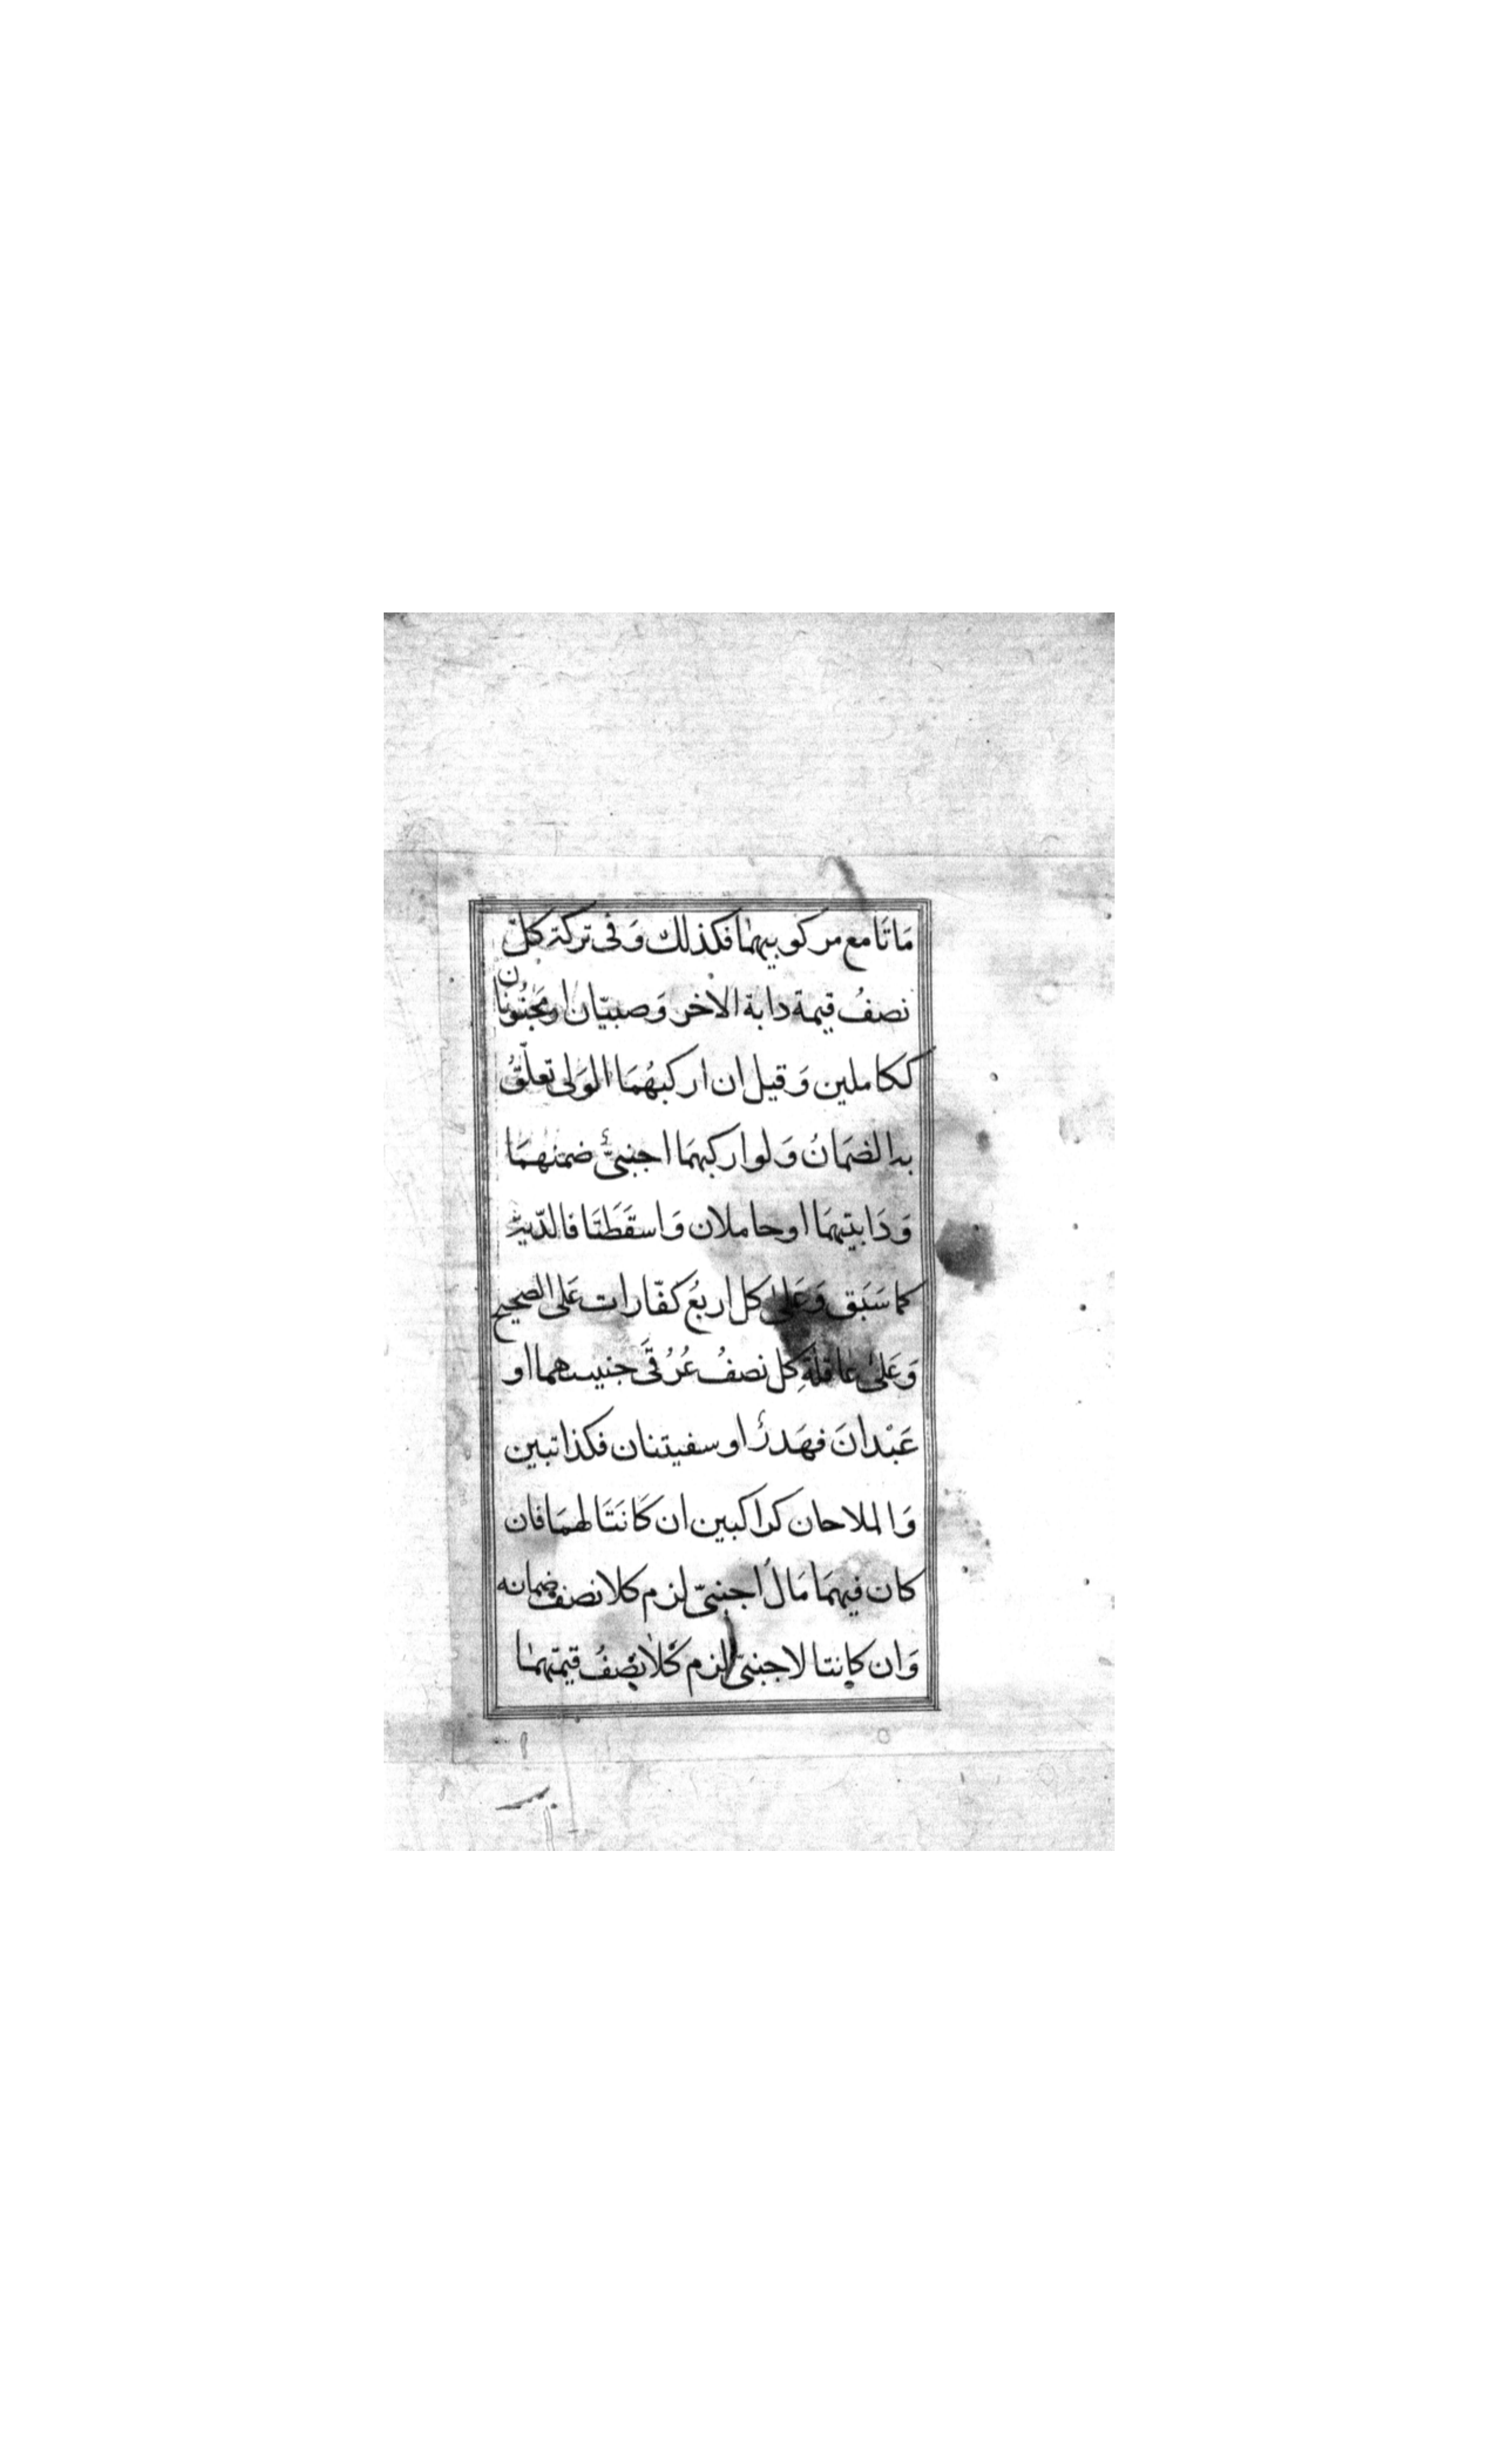 مَاتَا مع مركوبيهمَا فكذلك وَفى تركة كلّ
نصفُ قيمة دابة الاخر وَصبيّان او مجنُونان
ككاملين وَقيل ان اركبهُمَا الوَلى تعلّقُ
به الضمَانُ وَلو اركبهمَا اجنبىٌّ ضمنهمَا
وَدَابتيهمَا او حاملان وَاسقَطَتَا فالدّية
كما سَبَق وَعَلىٰ كل اربعُ كفّارات عَلى الصحيح
وَعَلىٰ عاقلةِ كل نصفُ غُرّتى جنينيهما او
عَبْدانَ فهَدرٌ او سفينتان فكدابتين
وَالملاحان كراكبين ان كَانَتَا لهمَا فان
كان فيهمَا مَال اجنبىّ لزم كلا نصف ضمانه
وَان كانتا لاجنبىّ لزم كلا نصفُ قيمتهما